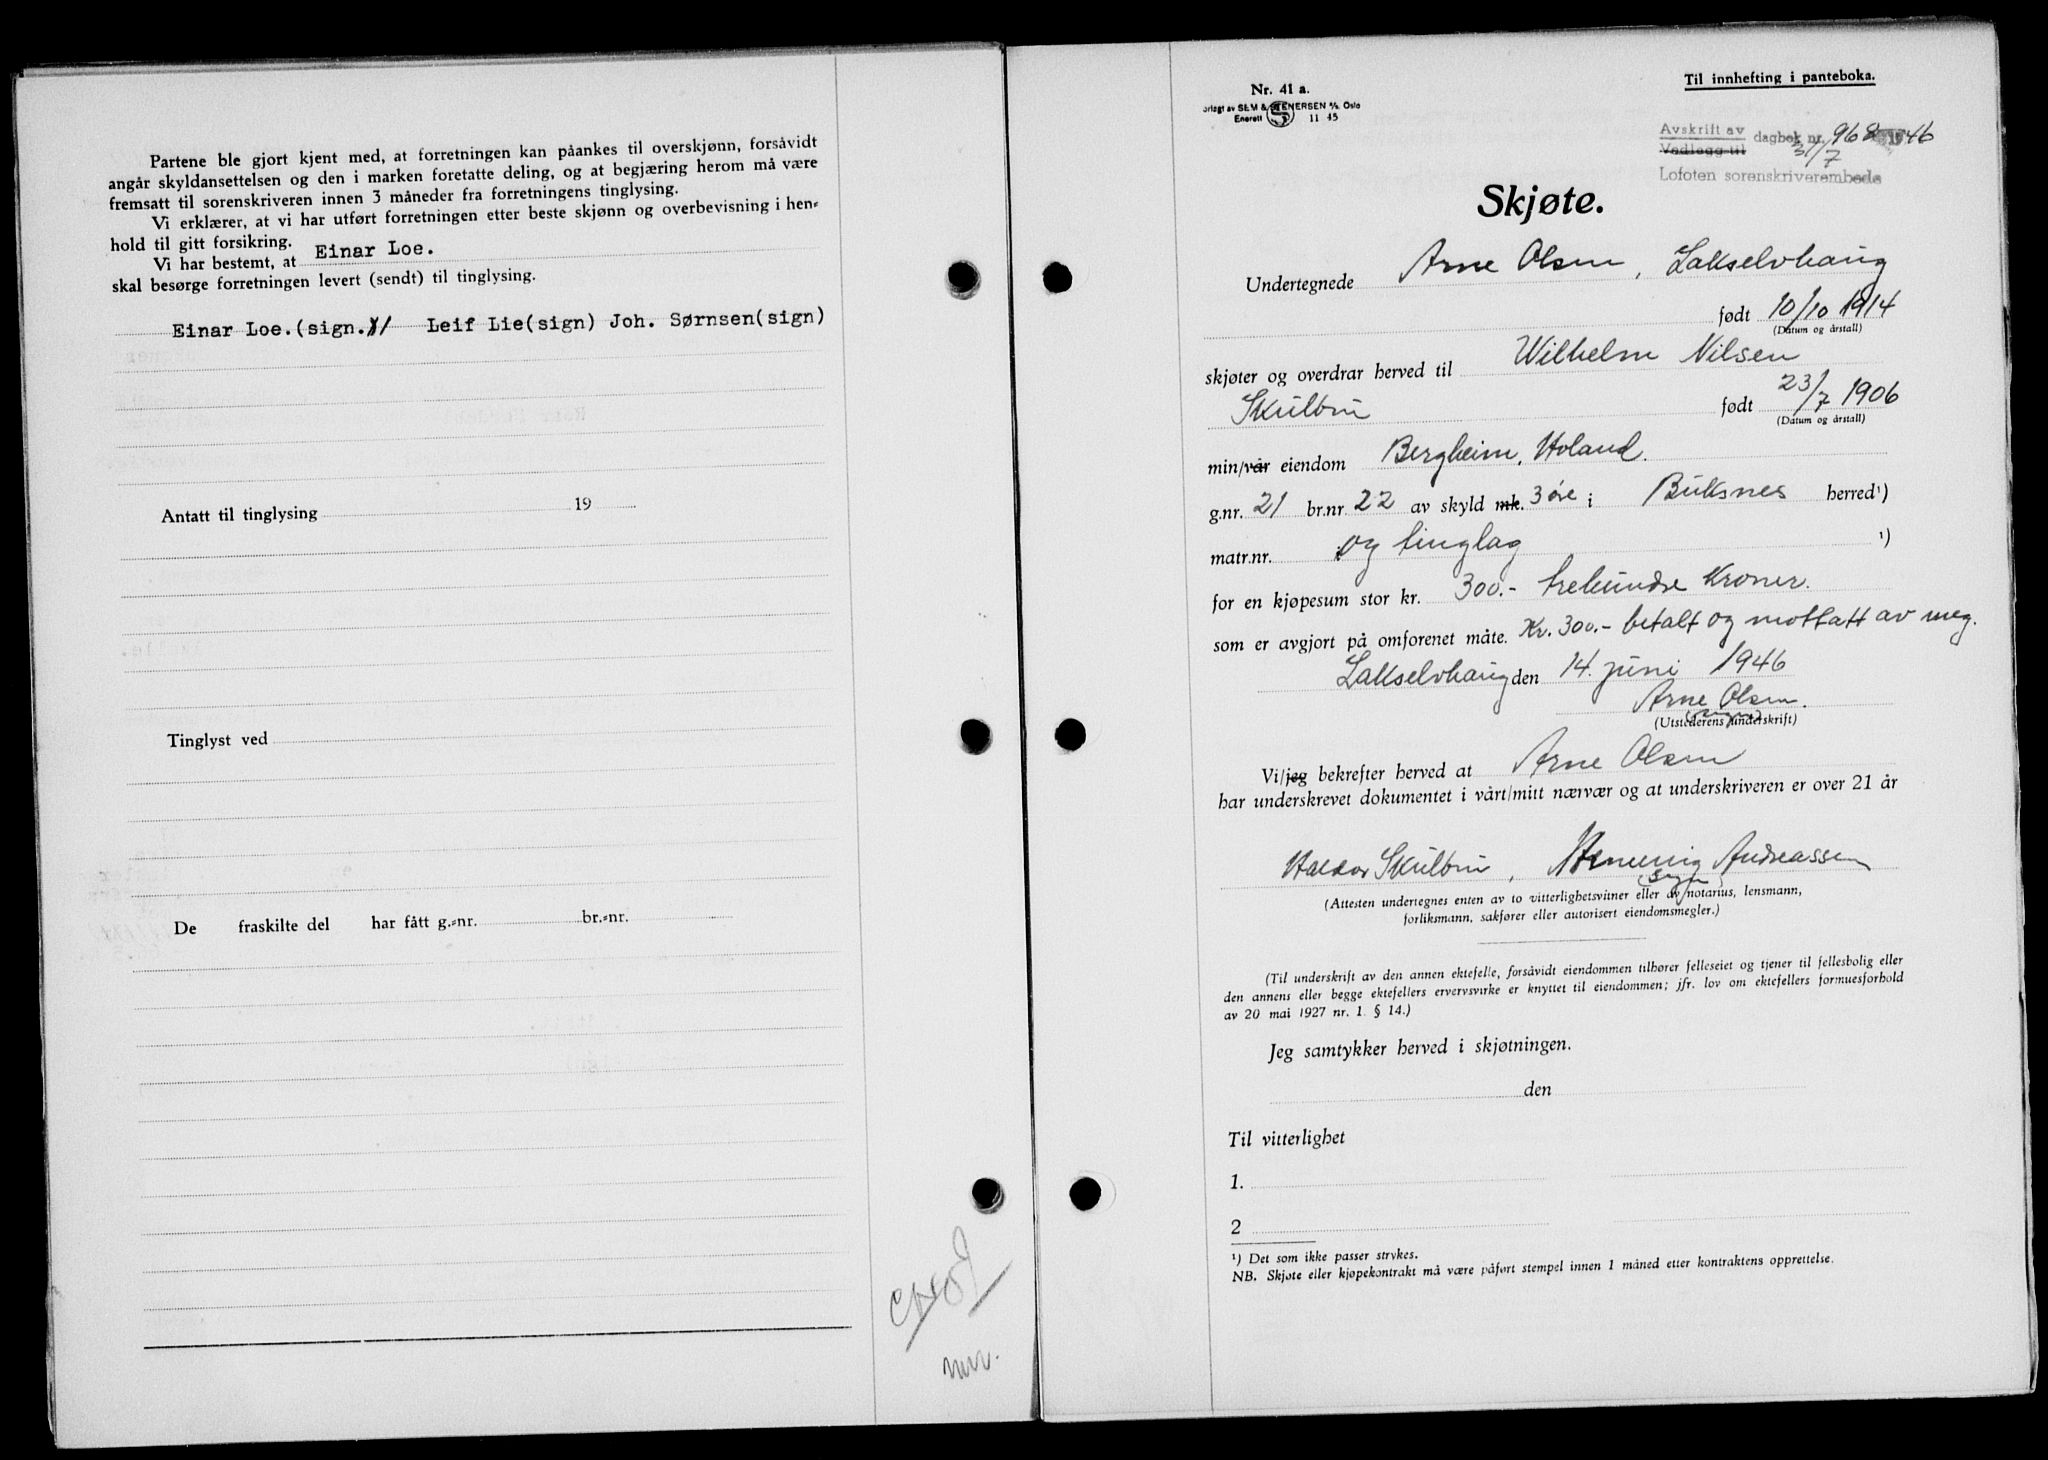 Partene ble gjort kjent med, at forretningen kan påankes til overskjønn, forsåvidt
angår skyldansettelsen og den i marken foretatte deling, og at begjæring herom må være
fremsatt til sorenskriveren innen 3 måneder fra forretningens tinglysing.
Vi erklærer, at vi har utført forretningen etter beste skjønn og overbevisning i hen=
hold til gitt forsikring.
Vi har bestemt, at Einar Loe.
skal besørge forretningen levert (sendt) til tinglysing.
Einar Loe.(sign.)/ Leif Lie(sign) Joh. Sørnsen(sign)
Antatt til tinglysing 19
Tinglyst ved
De fraskilte del har fått g.=nr. br.=nr.
Til innhefting i panteboka.
Nr. 41 a.
orlagt av SEM & STENERSEN A/S Oslo
Enerett S 11 45
Avskrift av
Vedlegg til dagbok nr. 968 1946
31/7
Lofoten sorenskriverembede
Skjøte.
Undertegnede Arne Olsen, Lakselvhaug
født 10/10 1914
(Datum og årstall)
skjøter og overdrar herved til Wilhelm Nilsen
Skulbru født 23/7 1906
(Datum og årstall)
min/vår eiendom Bergheim, Holand.
g.nr. 21 br.nr. 22 av skyld mk. 3 øre i Buksnes herred¹)
matr.nr. og tinglag ¹)
for en kjøpesum stor kr. 300.- trehundre kroner.
som er avgjort på omforenet måte. Kr. 300.- betalt og mottatt av meg.
Lakselvhaug den 14. juni 1946
Arne Olsen.
(sign)
(Utstederens underskrift)
Vi/jeg bekrefter herved at Arne Olsen
har underskrevet dokumentet i vårt/mitt nærvær og at underskriveren er over 21 år
Haldor Skulbru, Henning Andreassen
(sign)
(Attesten undertegnes enten av to vitterlighetsvitner eller av notarius, lensmann,
forliksmann, sakfører eller autorisert eiendomsmegler.)
(Til underskrift av den annen ektefelle, forsåvidt eiendommen tilhører felleseiet og tjener til fellesbolig eller
den annens eller begge ektefellers ervervsvirke er knyttet til eiendommen; jfr. lov om ektefellers formuesforhold
av 20 mai 1927 nr. 1 § 14.)
Jeg samtykker herved i skjøtningen.
den
Til vitterlighet
1.
2
¹) Det som ikke passer strykes.
NB. Skjøte eller kjøpekontrakt må være påført stempel innen 1 måned etter kontraktens opprettelse.